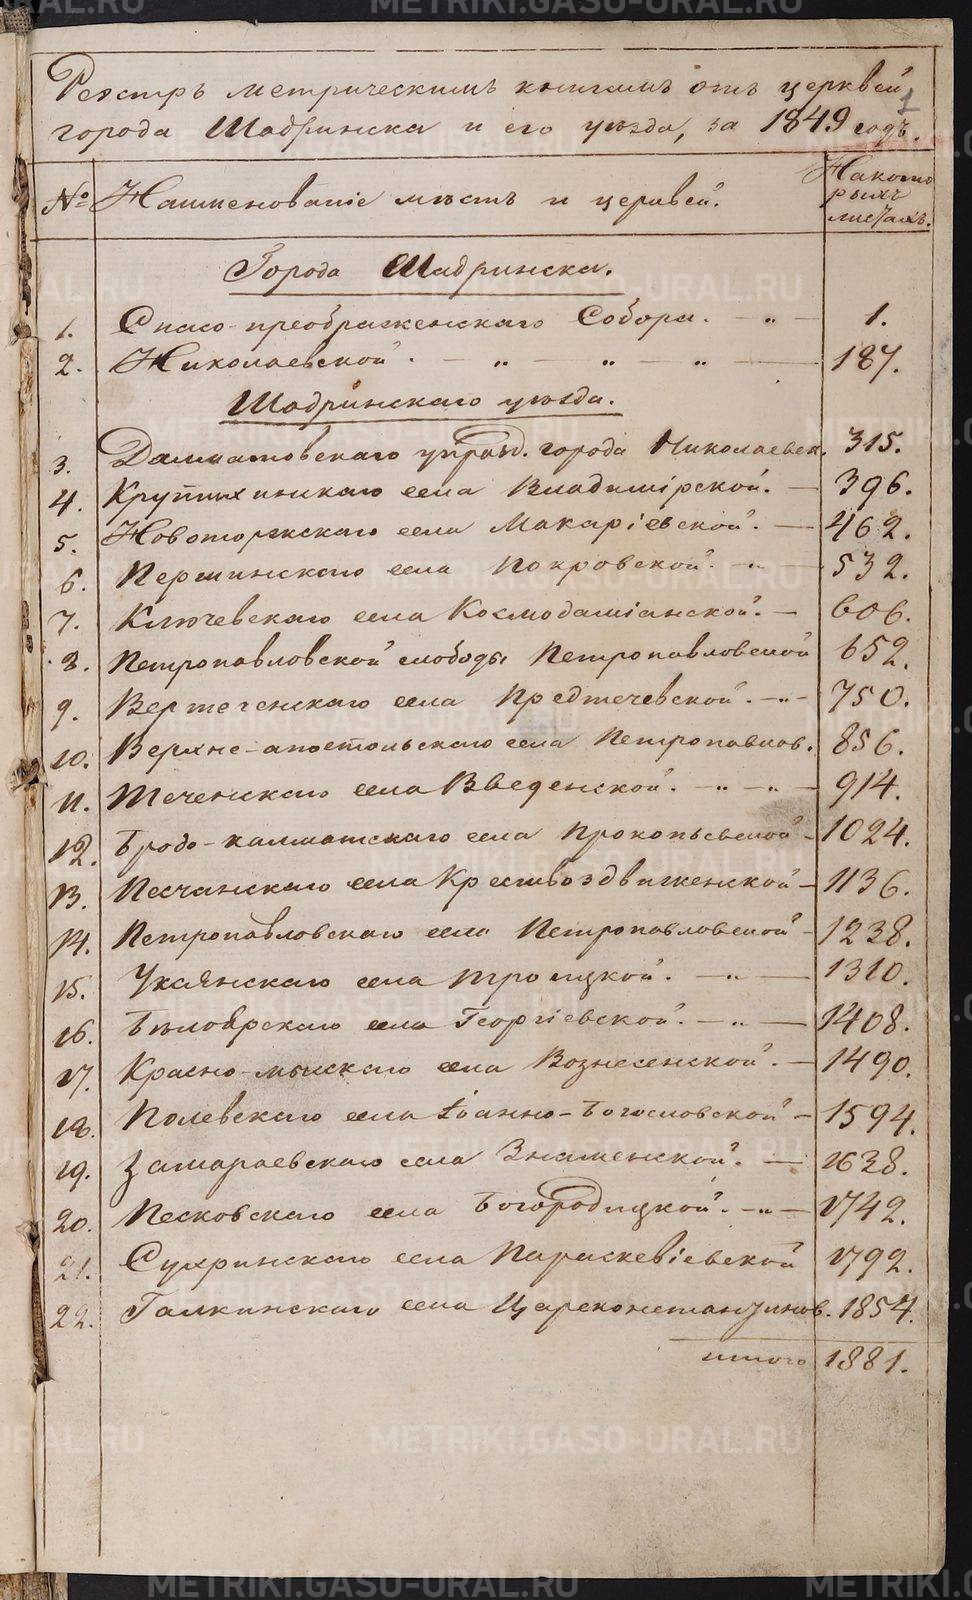 Реэстръ метрическимъ книгамъ отъ церквей
города Шадринска и его уѣзда, за 1849 годъ.
1
№ Наименованіе мѣстъ и церквей. На кото
рыхъ
листахъ.
Города Шадринска.
1. Спасо-преображенскаго Собора. — „ — 1.
2. Николаевской. — „ — „ — „ — 187.
Шадринскаго уѣзда.
3. Далматовскаго упразд. города Николаевск. 315.
4. Крутихинскаго села Владимірской. — 396.
5. Новоторжскаго села Макаріевской. — 462.
6. Першинскаго села Покровской. — 532.
7. Ключевскаго села Космодаміанской. — 606.
8. Петропавловской слободы Петропавловской 652.
9. Вертегенскаго села Предтечевской. — „ — 750.
10. Верхне-апостольскаго села Петропавлов. 856.
11. Теченскаго села Введенской. — „ — „ — 914.
12. Бродо-калматскаго села Прокопьевской — 1024.
13. Песчанскаго села Крествоздвиженской — 1136.
14. Петропавловскаго села Петропавловской — 1238.
15. Уксянскаго села Троицкой. — „ — 1310.
16. Бѣлоярскаго села Георгіевской. — „ — 1408.
17. Красно-мыскаго села Вознесенской. — 1490.
18. Полевскаго села Іоанно-Богословской — 1594.
19. Замараевскаго села Знаменской. — 1638.
20. Песковскаго села Богородицкой. — „ — 1742.
21. Сухринскаго села Параскевіевской 1792.
22. Галкинскаго села Цареконстантинов. 1854.
итого 1881.
METRIKI.GASO-URAL.RU